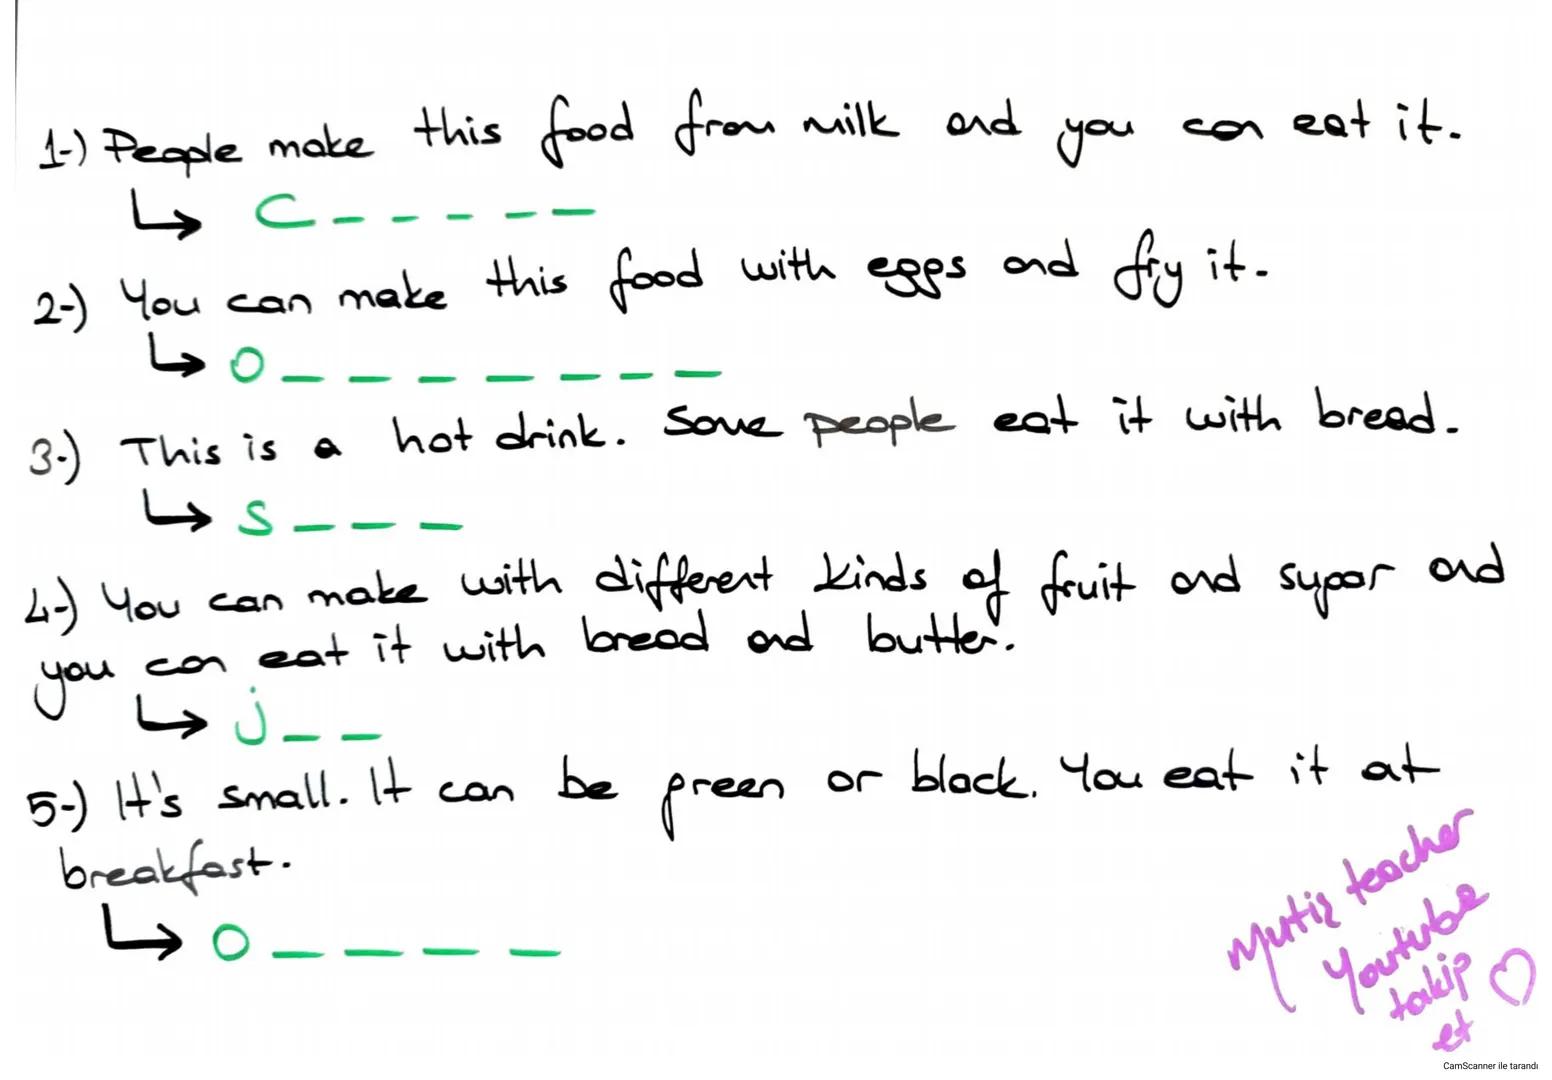 1-) People make this food from milk and you can eat it.
↳ C - - - - -
2-) You can make this food with eggs and fry it.
↳ O _ _ _ _ _ _ _
3-) This is a hot drink. Some people eat it with bread.
↳ S _ _ _
4-) You can make with different kinds of fruit and sugar and
you can eat it with bread and butter.
↳ j _ _
5-) It's small. It can be green or black. You eat it at
breakfast.
↳ O _ _ _ _
teacher
Youtube
takip
et
CamScanner ile tarandı